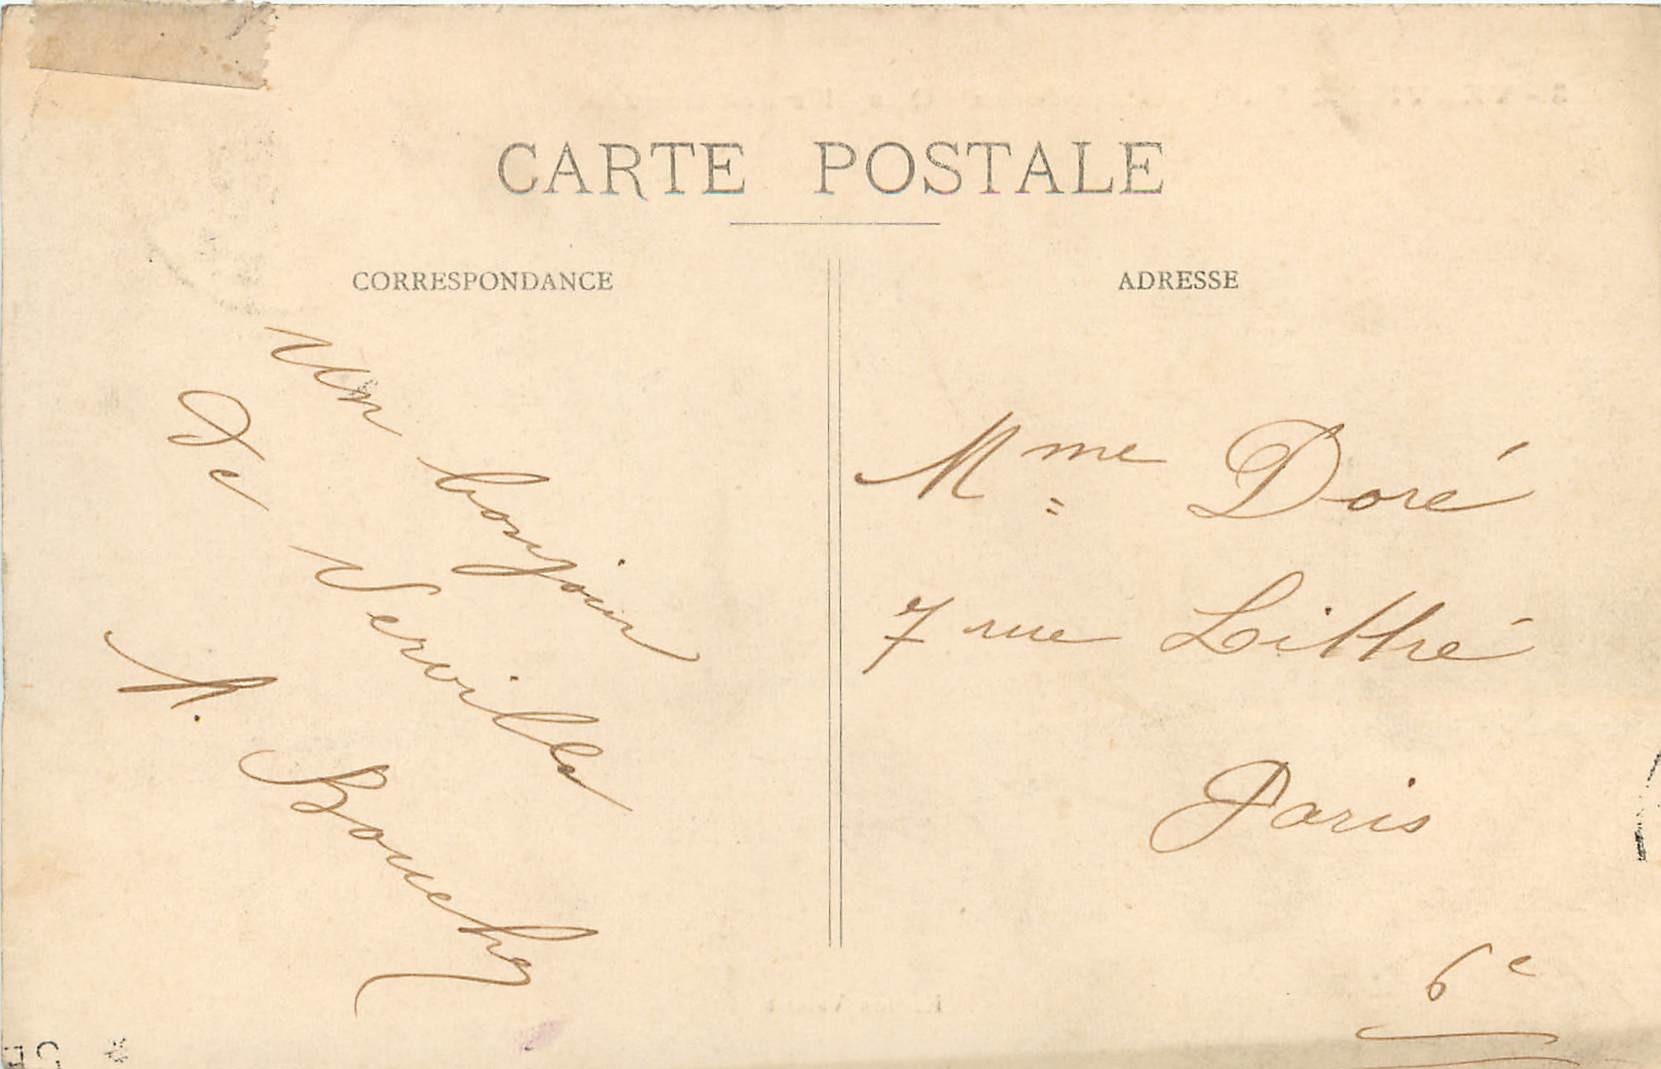 CARTE POSTALE
CORRESPONDANCE
Un bonjour
De Merville
A. Bouchy
ADRESSE
Mme Doré
7 rue Littré
Paris
6e